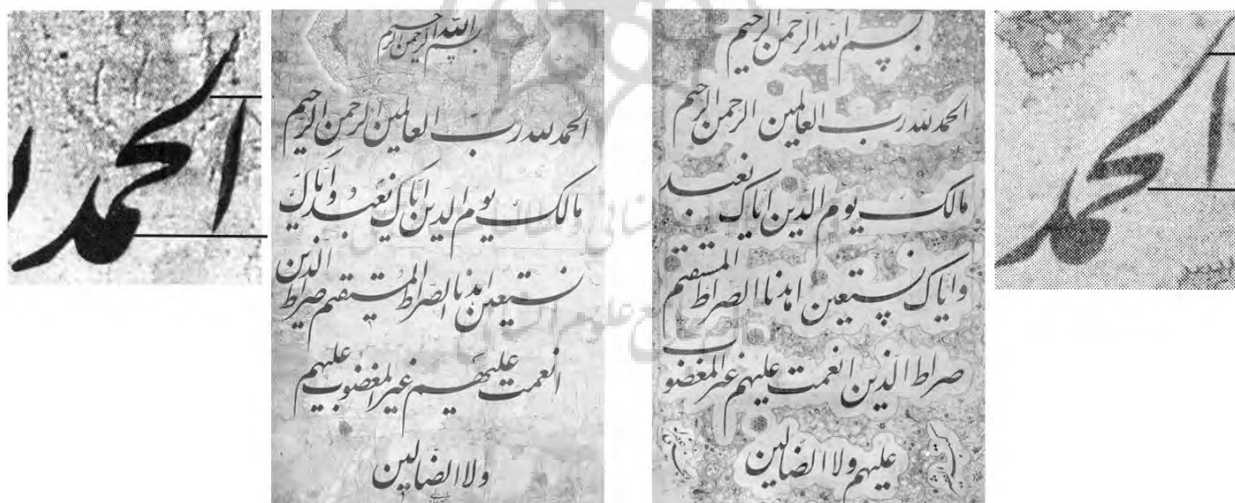 الحمد
بسم الله الرحمن الرحيم
الحمد لله رب العالمين الرحمن الرحيم
مالك يوم الدين اياك نعبد
واياك نستعين اهدنا الصراط المستقيم
صراط الذين انعمت عليهم غير المغضوب
عليهم ولا الضالين
بسم الله الرحمن الرحيم
الحمد لله رب العالمين الرحمن الرحيم
مالك يوم الدين اياك نعبد واياك
نستعين اهدنا الصراط المستقيم صراط الذين
انعمت عليهم غير المغضوب عليهم
ولا الضالين
الحمد
جامع علوم انسانی